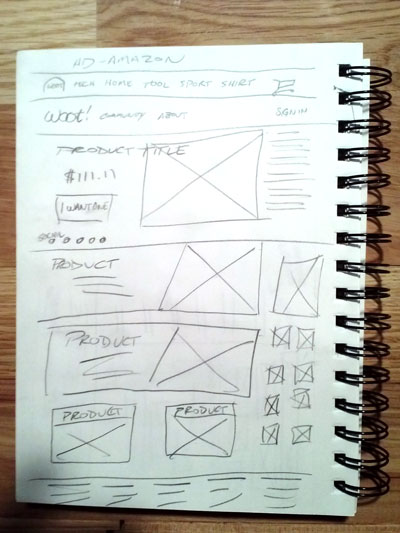 AD-AMAZON
WOOT TECH HOME TOOL SPORT SHIRT
woot! COMMUNITY ABOUT SIGN IN
PRODUCT TITLE
$111.11
I WANT ONE
PRODUCT
PRODUCT
PRODUCT PRODUCT